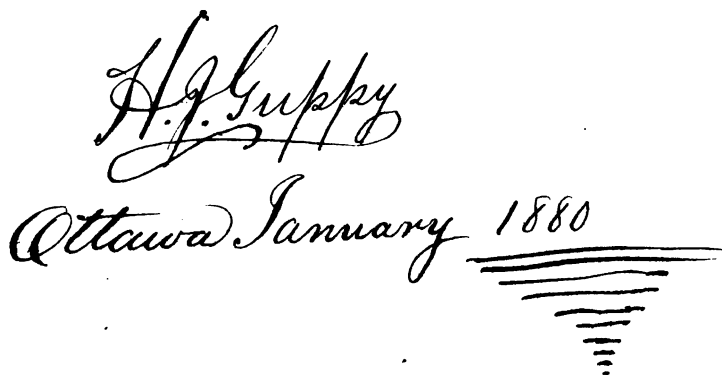 H. J. Guppy
Ottawa January 1880